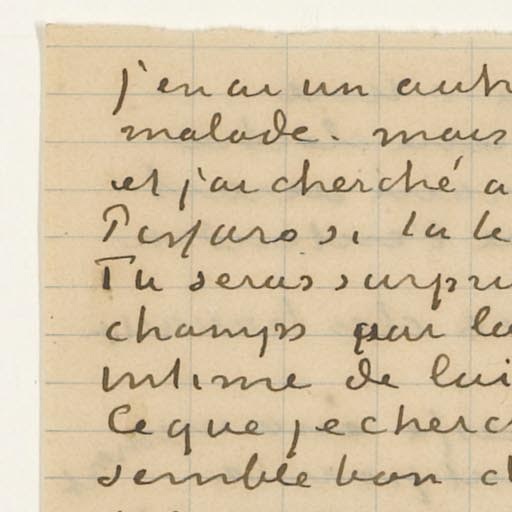 j'en ai un aut
malade. mais
et j'ai cherché a
si tu le
Tu seras surpri
champs par la
intime de lui
Ce que je cherc
semble bon d